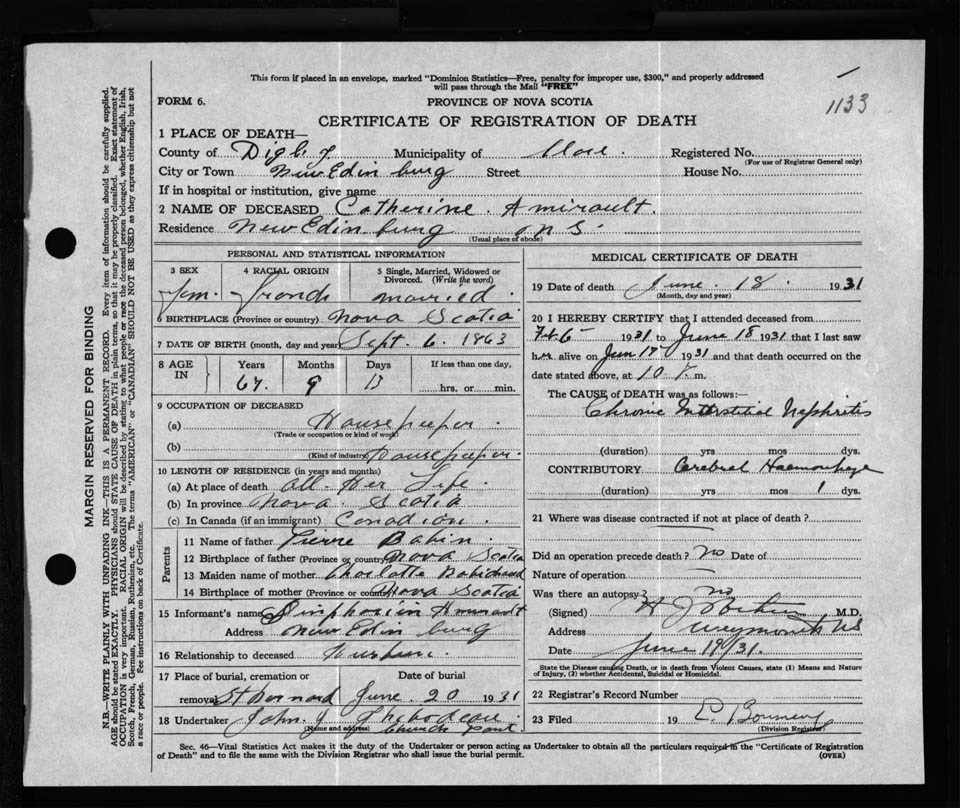 This form if placed in an envelope, marked "Dominion Statistics—Free, penalty for improper use, $300," and properly addressed
will pass through the Mail "FREE"
1133
FORM 6.
PROVINCE OF NOVA SCOTIA
CERTIFICATE OF REGISTRATION OF DEATH
1 PLACE OF DEATH—
County of Digby Municipality of Clare Registered No.
(For use of Registrar General only)
City or Town New Edin burg Street House No.
If in hospital or institution, give name
2 NAME OF DECEASED Catherine Amirault.
Residence New Edin burg N S
(Usual place of abode)
PERSONAL AND STATISTICAL INFORMATION
3 SEX 4 RACIAL ORIGIN 5 Single, Married, Widowed or Divorced. (Write the word)
Fem. French married.
6 BIRTHPLACE (Province or country) Nova Scotia
7 DATE OF BIRTH (month, day and year) Sept. 6. 1863
8 AGE IN Years Months Days If less than one day,
67. 9 13 hrs. or min.
9 OCCUPATION OF DECEASED
(a) Housekeeper
(Trade or occupation or kind of work)
(b) Housekeeper
(Kind of industry)
10 LENGTH OF RESIDENCE (in years and months)
(a) At place of death all Her Life
(b) In province Nova Scotia
(c) In Canada (if an immigrant) Canadian
Parents
11 Name of father Pierre Babin
12 Birthplace of father (Province or country) Nova Scotia
13 Maiden name of mother Charlotte Robichaud
14 Birthplace of mother (Province or country) Nova Scotia
15 Informant's name Simphorien Amirault
Address New Edin burg
16 Relationship to deceased
17 Place of burial, cremation or removal Date of burial
St Bernard June 20 1931
18 Undertaker John J Thibodeau
(Name and address) Church Point
MEDICAL CERTIFICATE OF DEATH
19 Date of death June 18 1931
(Month, day and year)
20 I HEREBY CERTIFY that I attended deceased from
Feb 6 1931 to June 18 1931 that I last saw
h alive on Jun 17 1931 and that death occurred on the
date stated above, at 10 P. m.
The CAUSE OF DEATH was as follows:—
Chronic Interstitial Nephritis
(duration) yrs mos dys.
CONTRIBUTORY Cerebral Haemorrhage
(duration) yrs mos 1 dys.
21 Where was disease contracted if not at place of death?
Did an operation precede death? no Date of
Nature of operation
Was there an autopsy? no
(Signed) M.D.
Address Weymouth NS
Date June 19/31.
State the Disease causing Death, or in death from Violent Causes, state (1) Means and Nature
of Injury, (2) whether Accidental, Suicidal or Homicidal.
22 Registrar's Record Number
23 Filed 19
(Division Registrar)
Sec. 46—Vital Statistics Act makes it the duty of the Undertaker or person acting as Undertaker to obtain all the particulars required in the "Certificate of Registration
of Death" and to file the same with the Division Registrar who shall issue the burial permit. (OVER)
MARGIN RESERVED FOR BINDING
N.B.—WRITE PLAINLY WITH UNFADING INK—THIS IS A PERMANENT RECORD. Every item of information should be carefully supplied.
AGE should be stated EXACTLY. PHYSICIANS should STATE CAUSE OF DEATH in plain terms, so that it may be properly classified. Exact statement of
OCCUPATION is very important. RACIAL ORIGIN will be described by stating to what people or race the deceased person belonged, whether English, Irish,
Scotch, French, German, Russian, Ruthenian, etc. The terms "AMERICAN" or "CANADIAN" SHOULD NOT BE USED as they express citizenship but not
a race or people. See instructions on back of Certificate.